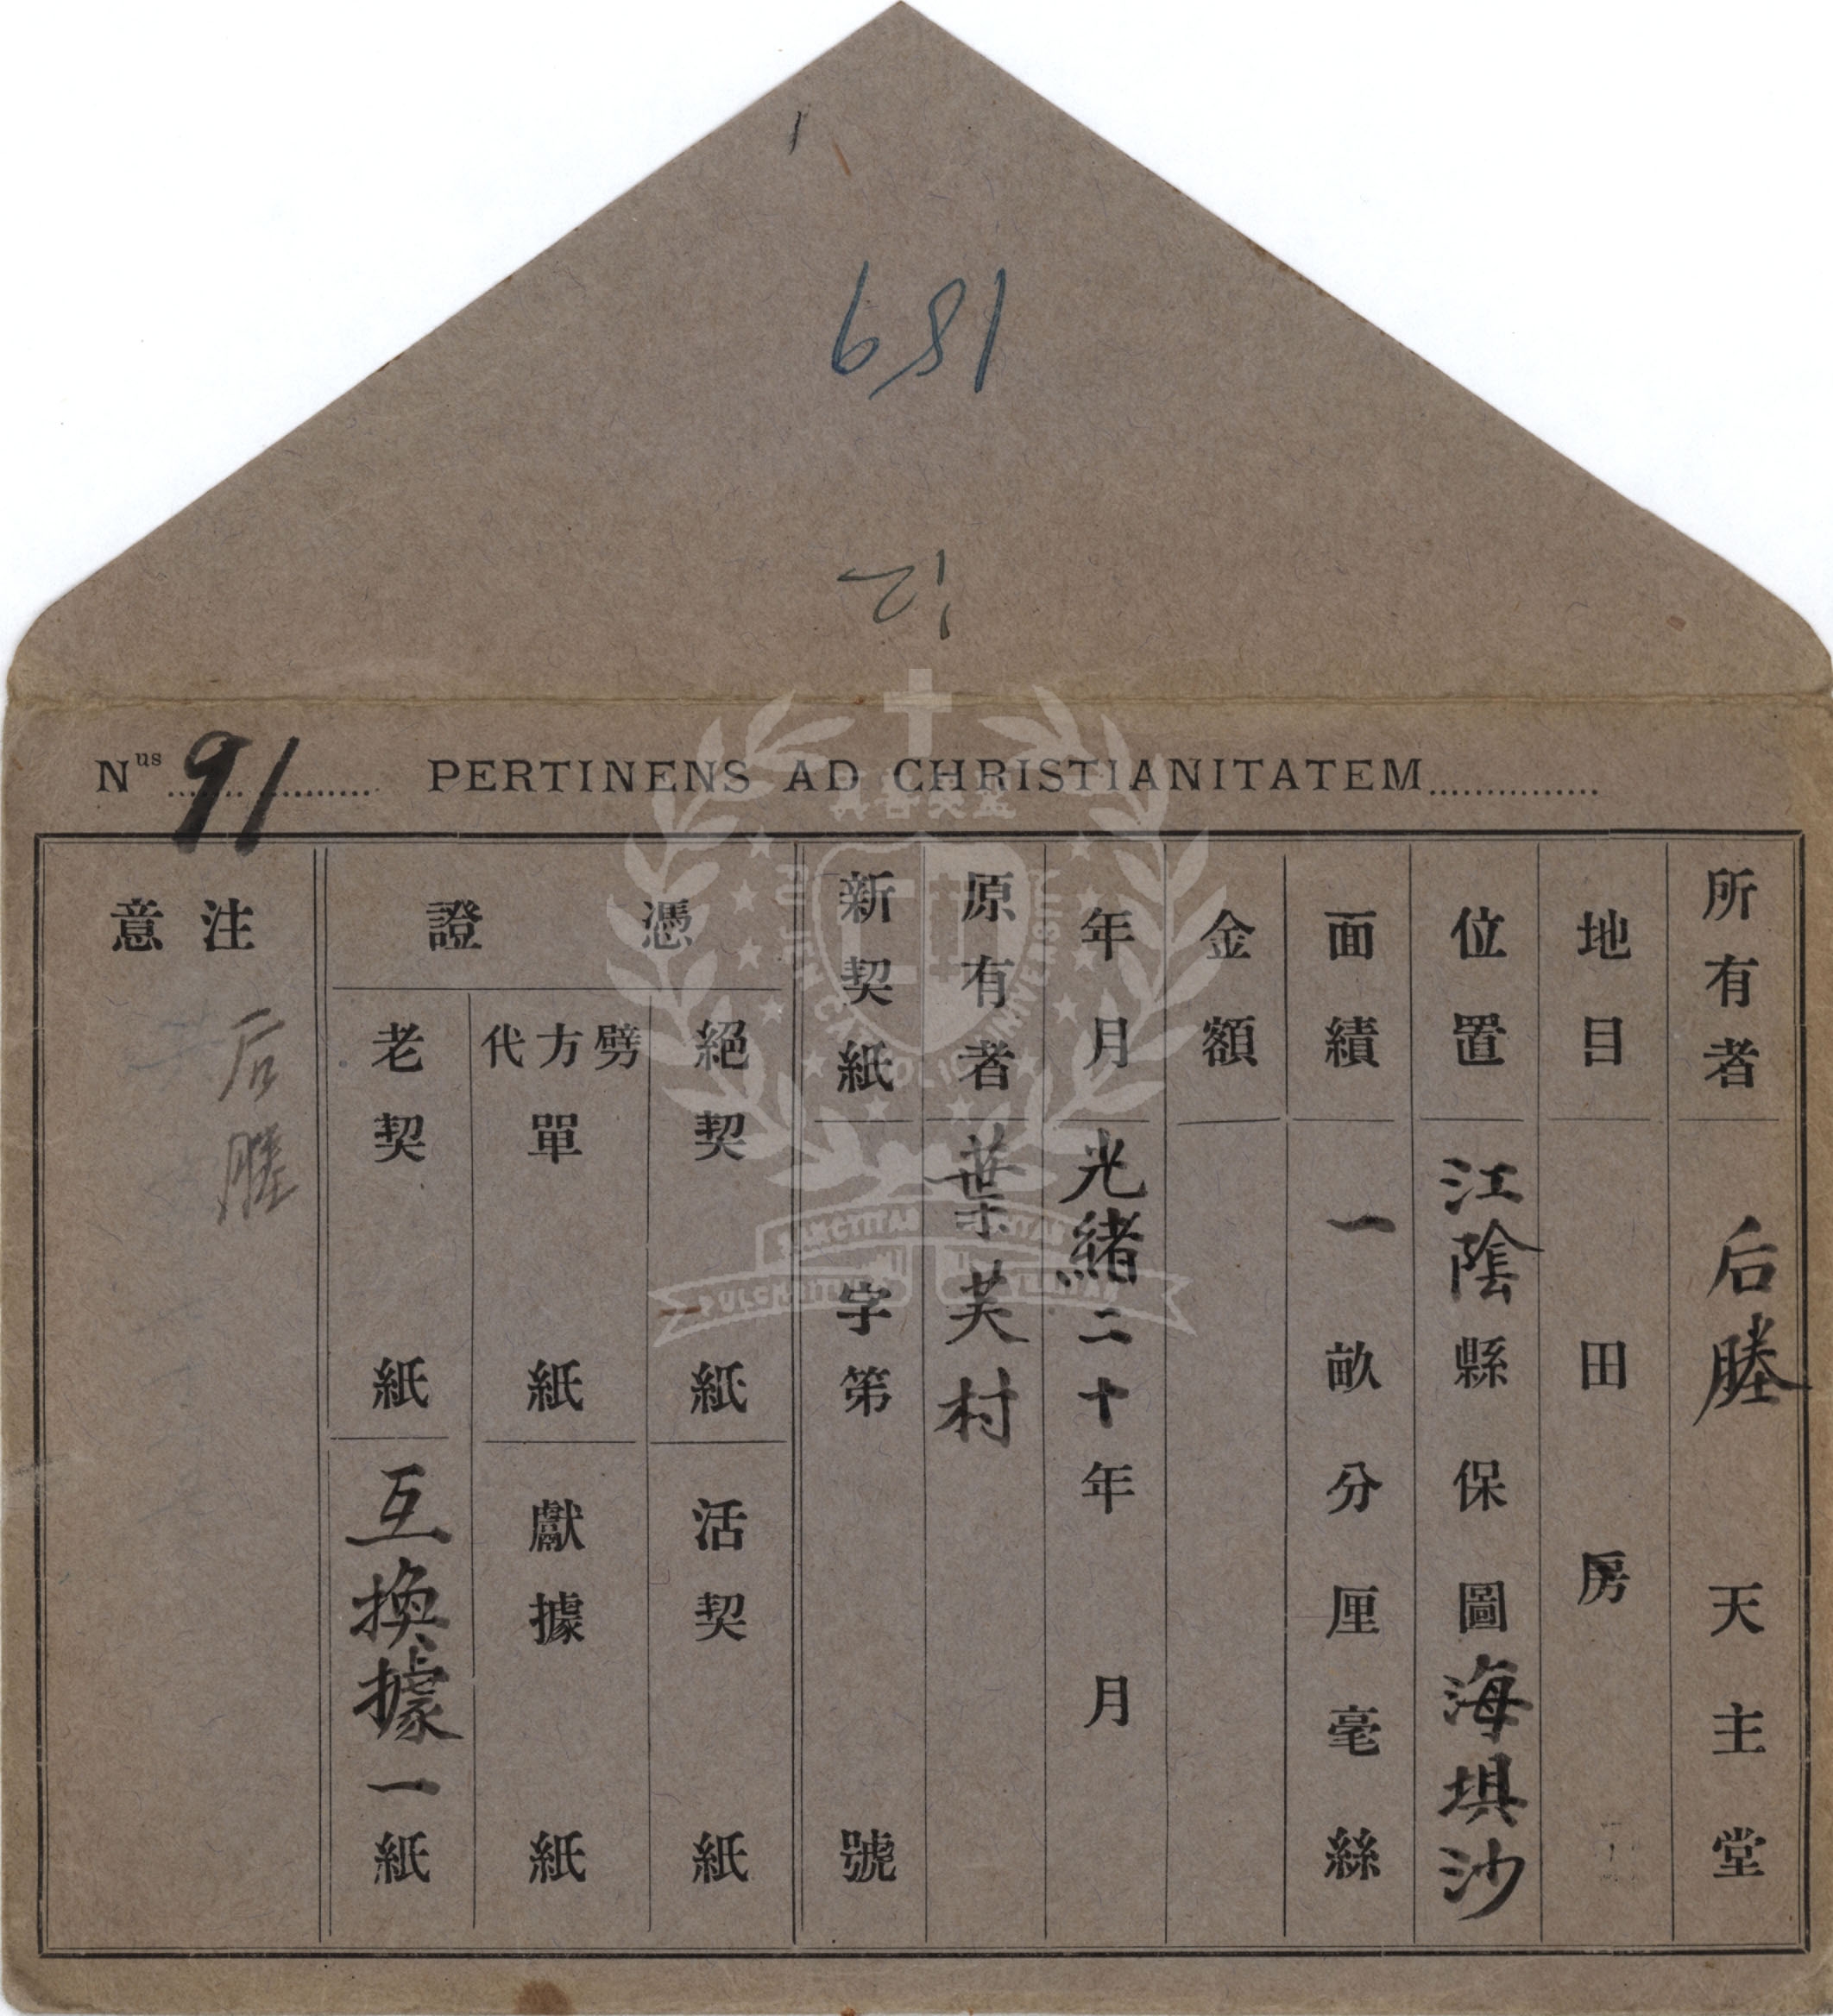 189
12
Nus 91 PERTINENS AD CHRISTIANITATEM
所有者 后塍 天主堂
地目 田 房
位置 江陰縣 保 圖 海埧沙
面績 一畝 分 厘 毫 絲
金額
年月 光緒二十年 月
原有者 葉芙村
新契紙 字第 號
憑證
絕契 紙
活契 紙
劈方代單 紙
獻據 紙
老契 紙
互換據一紙
注意
后塍
輔仁大學
FU JEN CATHOLIC UNIVERSITY